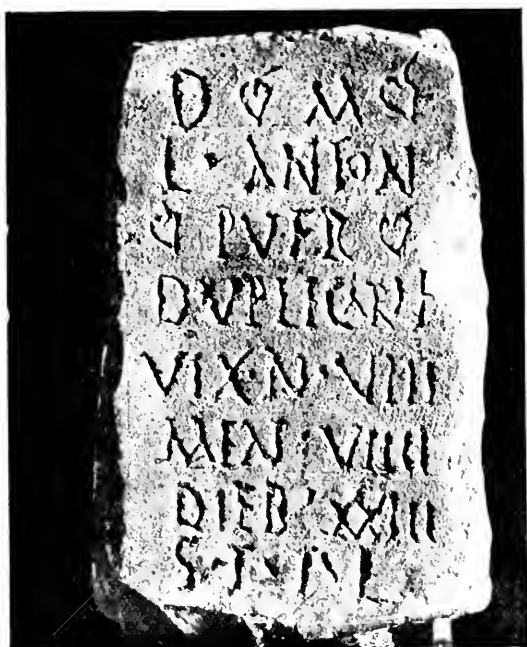 D ❦ M ❦
L · ANTON
❦ PVER ❦
DVPLICARIS
VIX · N · VIII
MEN · VIIII
DIEB · XXIII
S · T · T · L